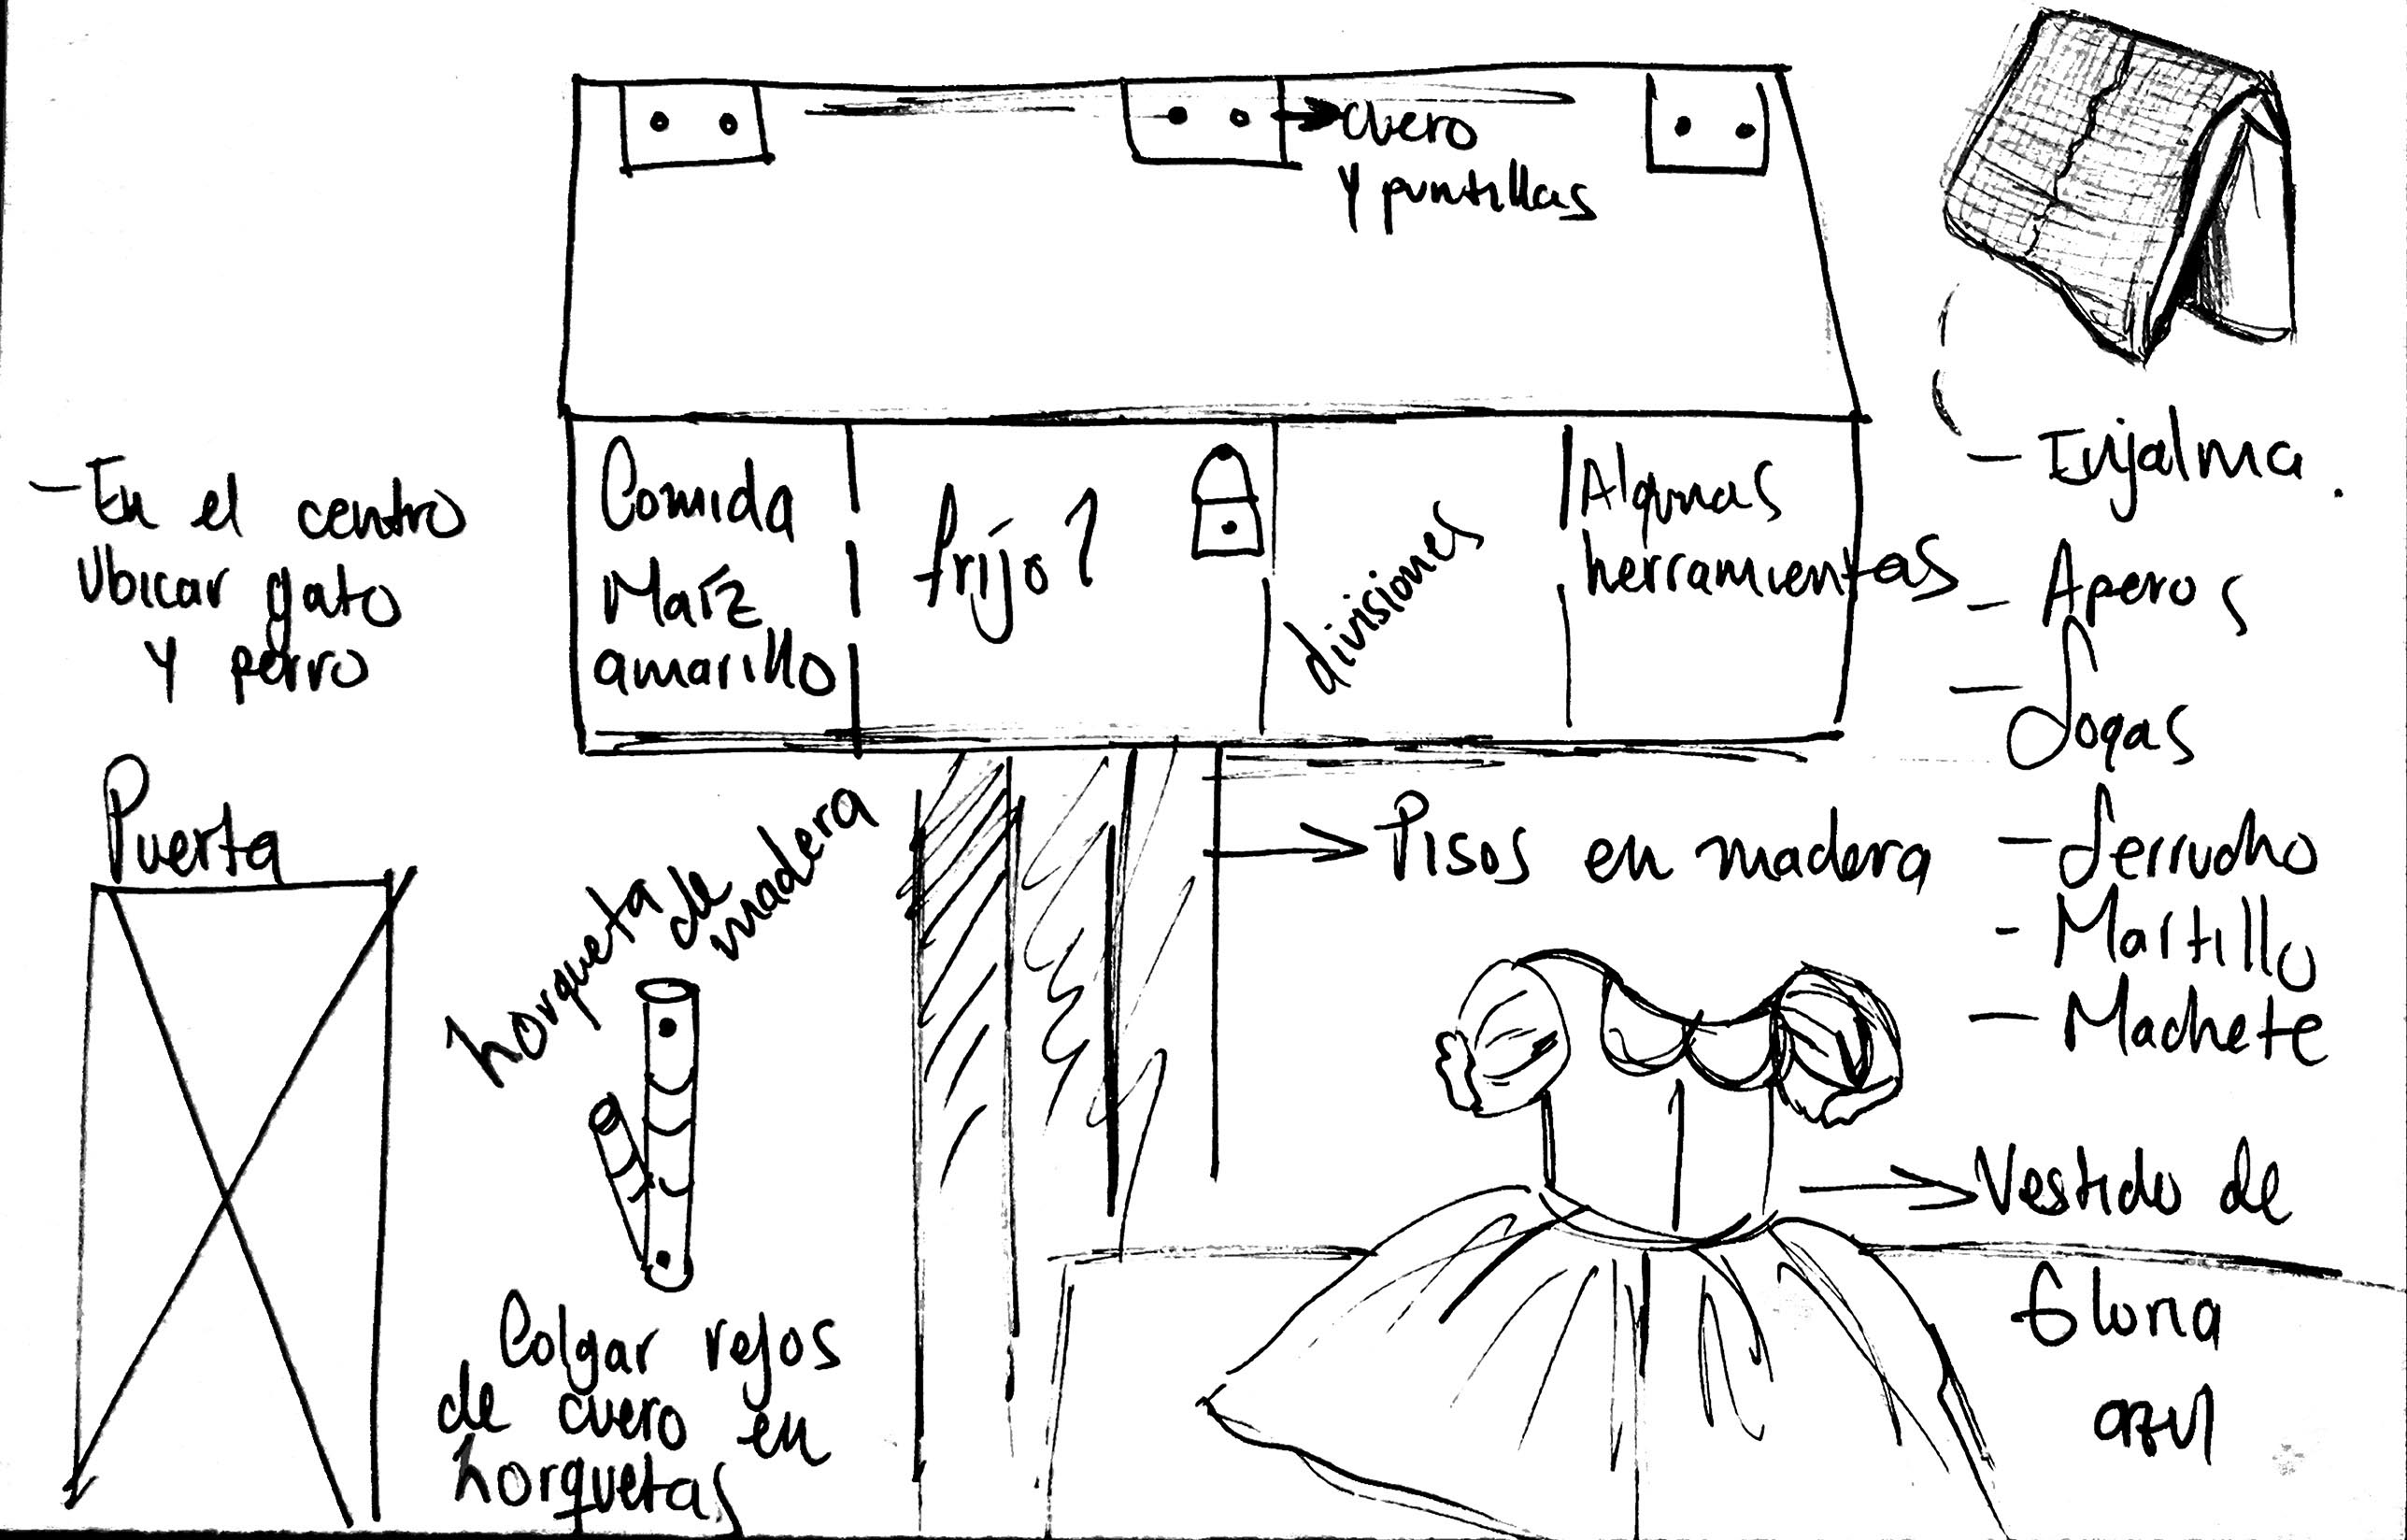 cuero
y puntillas
- En el centro
Ubicar gato
y perro
Comida
Maíz
amarillo
frijol
divisiones
Algunas
herramientas
- Enjalma.
- Aperos
- Sogas
- Serrucho
- Martillo
- Machete
Puerta
horqueta
de
madera
Pisos en madera
Colgar rejos
de cuero en
horquetas
Vestido de
Gloria
azul